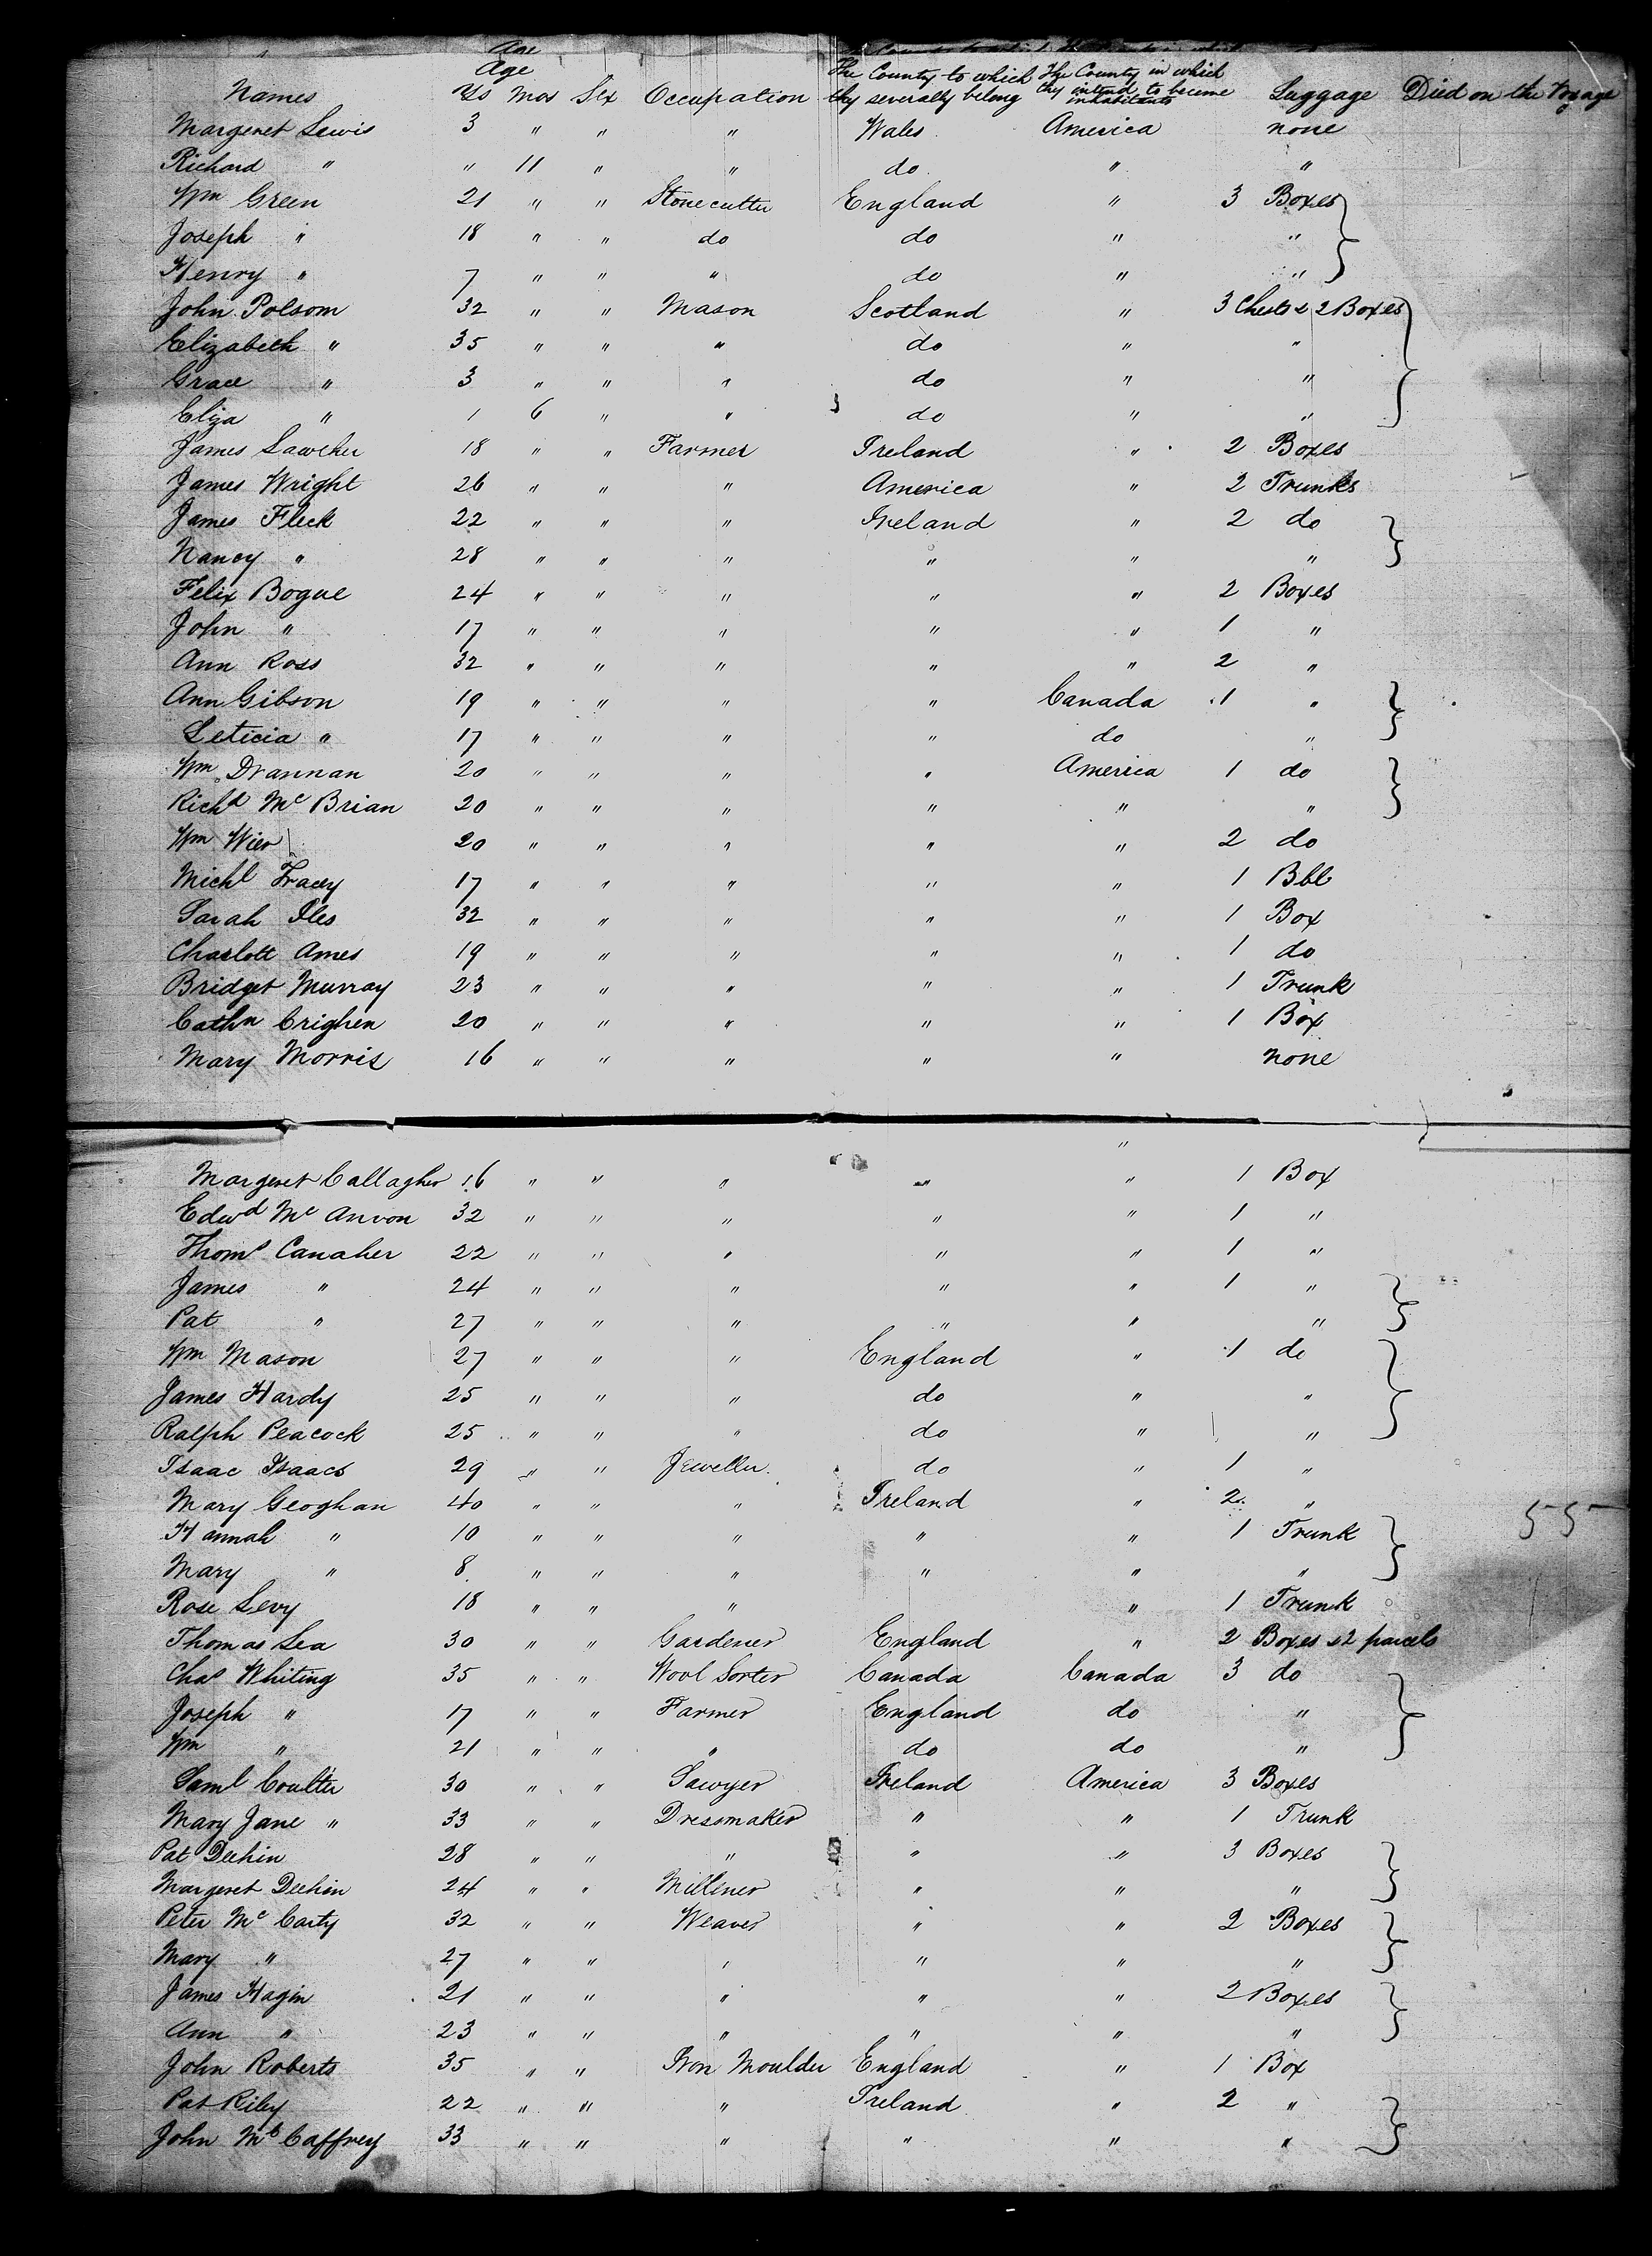 Age
Age
Names Ys Mos Sex Occupation The County to which they severally belong The County in which they intend to become inhabitants Luggage Died on the Voyage
Margeret Lewis 3 " " " Wales America none
Richard " " 11 " " do " "
Wm Green 21 " " Stonecutter England " 3 Boxes
Joseph " 18 " " do do " "
Henry " 7 " " " do " "
John Polsom 32 " " Mason Scotland " 3 Chests & 2 Boxes
Elizabeth " 35 " " " do " "
Grace " 3 " " " do " "
Eliza " 1 6 " " do " "
James Lawcher 18 " " Farmer Ireland " 2 Boxes
James Wright 26 " " " America " 2 Trunks
James Fleck 22 " " " Ireland " 2 do
Nancy " 28 " " " " " "
Felix Bogue 24 " " " " " 2 Boxes
John " 17 " " " " " 1 "
Ann Ross 32 " " " " " 2 "
Ann Gibson 19 " " " " Canada 1 "
Leticia " 17 " " " " do "
Wm Drannan 20 " " " " America 1 do
Richd Mc Brian 20 " " " " " "
Wm Wier 20 " " " " " 2 do
Michl Tracey 17 " " " " " 1 Bbl
Sarah Iles 32 " " " " " 1 Box
Charlott Ames 19 " " " " " 1 do
Bridget Murray 23 " " " " " 1 Trunk
Cathn Crighen 20 " " " " " 1 Box
Mary Morris 16 " " " " " none
"
Margeret Callagher 16 " " " " " 1 Box
Edwd Mc Anvon 32 " " " " " 1 "
Thoms Canaher 22 " " " " " 1 "
James " 24 " " " " " 1 "
Pat " 27 " " " " " "
Wm Mason 27 " " " England " 1 do
James Hardy 25 " " " do " "
Ralph Peacock 25 " " " do " "
Isaac Isaacs 29 " " Jeweller do " 1 "
Mary Geoghan 40 " " " Ireland " 2 "
Hannah " 10 " " " " " 1 Trunk
55
Mary " 8 " " " " " "
Rose Levy 18 " " " " 1 Trunk
Thomas Lea 30 " " Gardener England " 2 Boxes & 2 parcels
Chas Whiting 35 " " Wool Sorter Canada Canada 3 do
Joseph " 17 " " Farmer England do "
Wm " 21 " " " do do "
Saml Coulter 30 " " Sawyer Ireland America 3 Boxes
Mary Jane " 33 " " Dressmaker " " 1 Trunk
Pat Deehin 28 " " " " " 3 Boxes
Margeret Deehin 24 " " Milliner " " "
Peter Mc Carty 32 " " Weaver " " 2 Boxes
Mary " 27 " " " " " "
James Hagin 21 " " " " " 2 Boxes
Ann " 23 " " " " " "
John Roberts 35 " " Iron Moulder England " 1 Box
Pat Riley 22 " " " Ireland " 2 "
John Mc Caffrey 33 " " " " " "